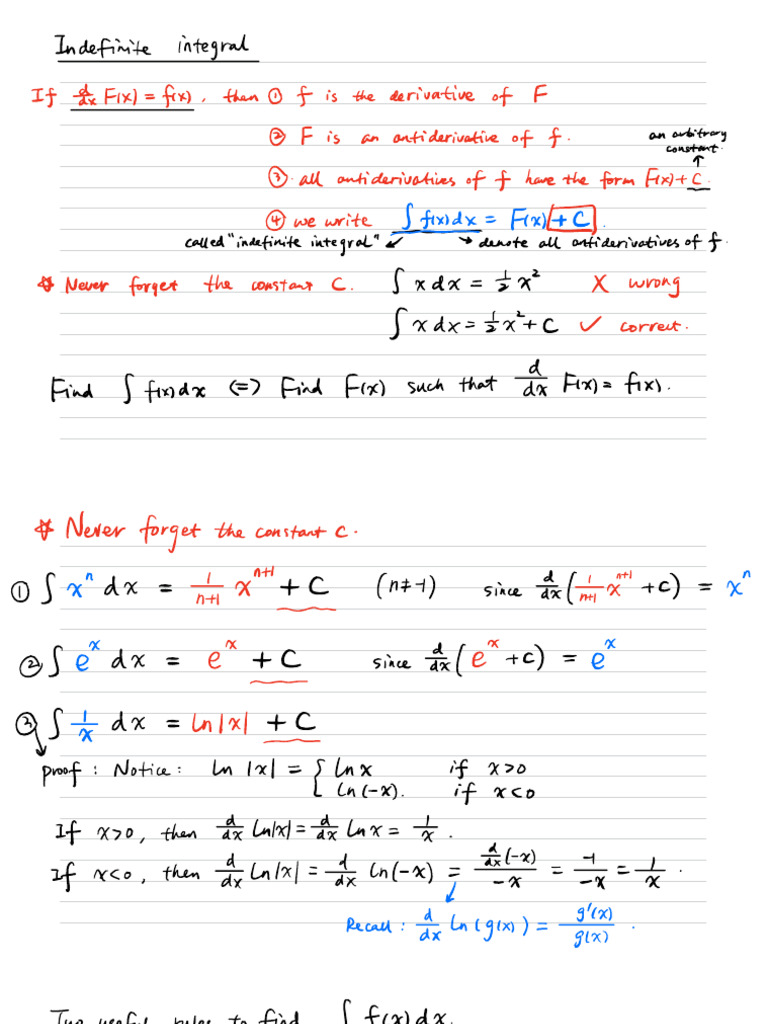 Indefinite integral
If d/dx F(x) = f(x), then ① f is the derivative of F
② F is an antiderivative of f.
an arbitrary
constant.
↑
③ all antiderivatives of f have the form F(x)+C.
④ we write ∫ f(x)dx = F(x) + C.
called "indefinite integral" ↙ → denote all antiderivatives of f.
☆ Never forget the constant C. ∫ x dx = 1/2 x² X wrong
∫ x dx = 1/2 x² + C ✓ correct.
Find ∫ f(x)dx <=> Find F(x) such that d/dx F(x) = f(x).
☆ Never forget the constant C.
① ∫ xⁿ dx = 1/(n+1) xⁿ⁺¹ + C (n≠-1) since d/dx (1/(n+1) xⁿ⁺¹ + C) = xⁿ
② ∫ eˣ dx = eˣ + C since d/dx (eˣ + C) = eˣ
③ ∫ 1/x dx = ln|x| + C
proof: Notice: ln |x| = { ln x if x>0
ln(-x). if x<0
If x>0, then d/dx ln|x| = d/dx ln x = 1/x.
If x<0, then d/dx ln|x| = d/dx ln(-x) = (d/dx (-x))/(-x) = -1/-x = 1/x.
Recall: d/dx ln(g(x)) = g'(x)/g(x).
Two useful rules to find ∫ f(x)dx.